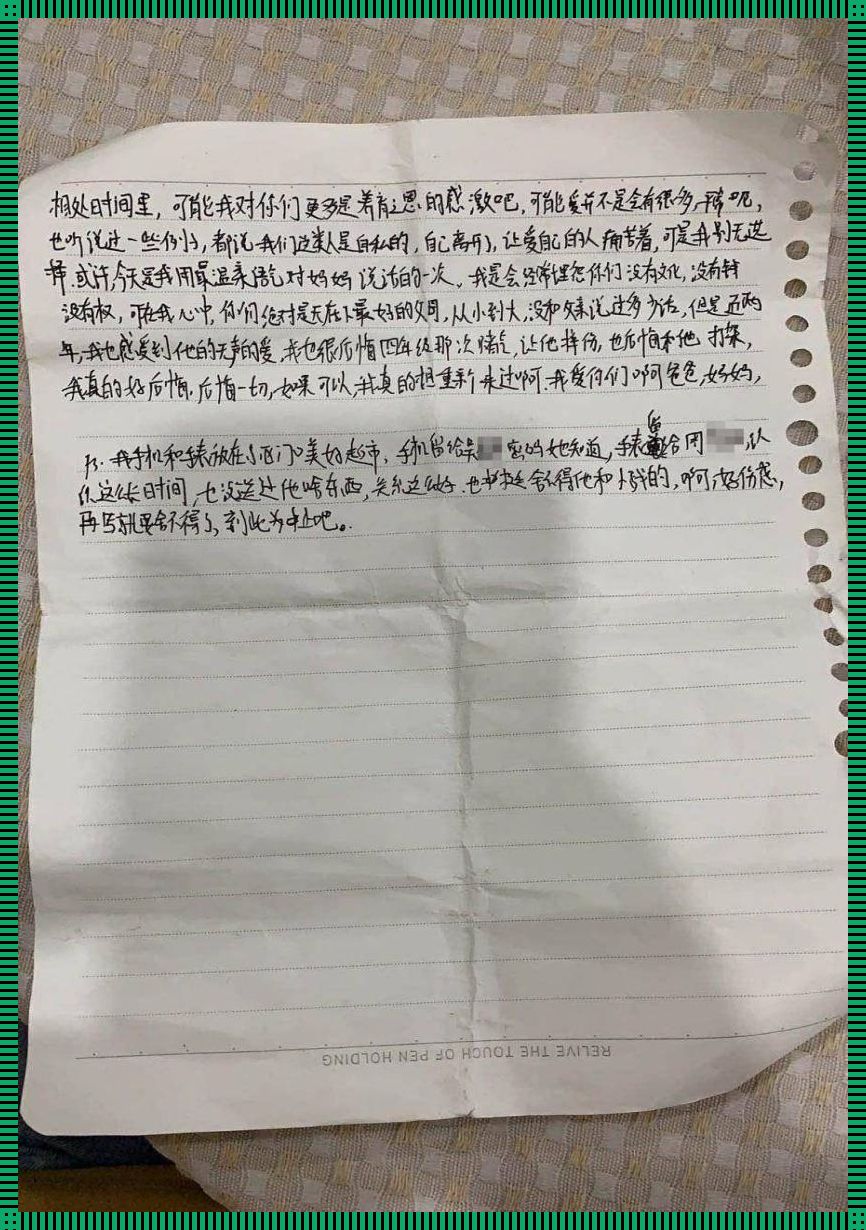 相处时间里，可能我对你们更多是养育之恩的感激吧，可能爱并不是会有很多，唉呢，
也听说过一些例子，都说我们这类人是自私的，自己离开了，让爱自己的人痛苦着，可是我别无选
择.或许，今天是我用最温柔语气对妈妈说话的一次。我是会经常埋怨你们没有文化，没有钱
没有权，可在我心中，你们绝对是天在下最好的父母，从小到大，没和父亲说过多少话，但是近两
年，我也感受到他的无声的爱，我也很后悔四年级那次赌气，让他摔伤，也后悔和他打架，
我真的好后悔.后悔一切，如果可以，我真的想重新来过啊.我爱你们啊爸爸，妈妈，
Ps.我手机和手表放在小西门口美好超市，手机留给吴 密码她知道，手表留给周 ，认
认这么长时间，也没送过他啥东西，关系这么好.也挺舍不得他和 的，啊，好伤感，
再写就要舍不得了，到此为止吧。
RELIVE THE TOUCH OF PEN HOLDING